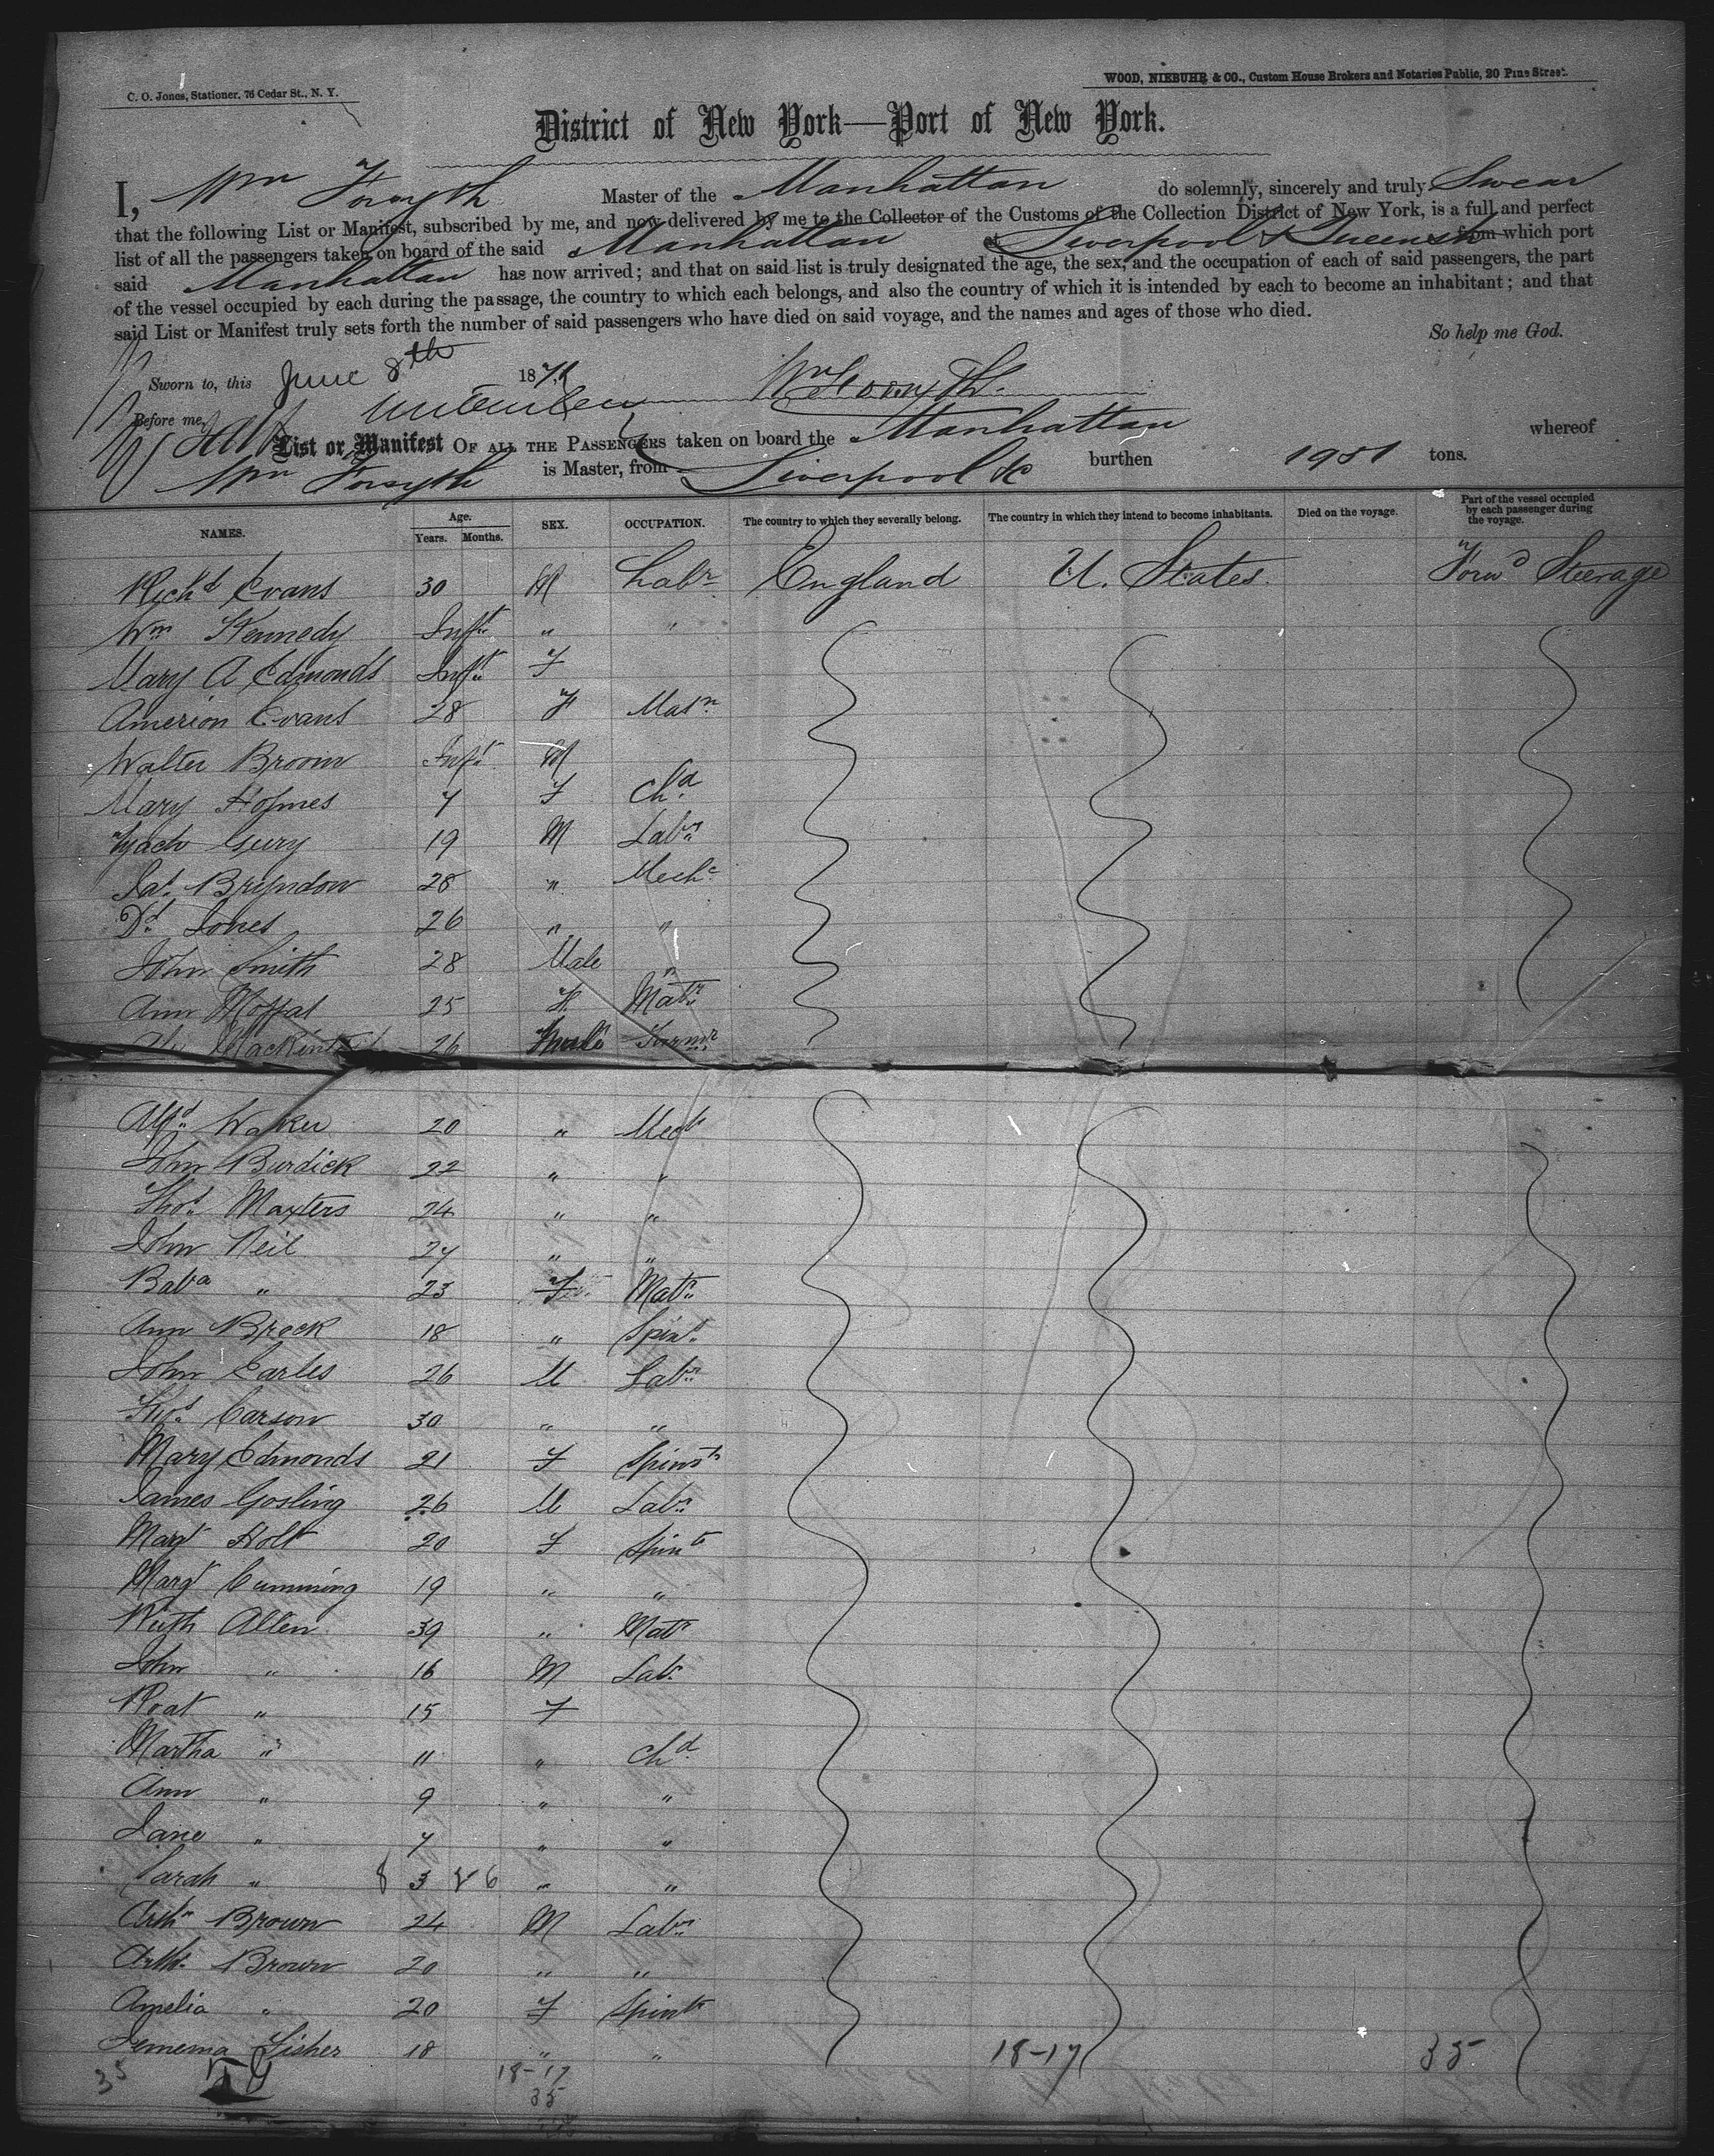 C. O. Jones, Stationer, 76 Cedar St., N. Y.
WOOD, NIEBUHR & CO., Custom House Brokers and Notaries Public, 20 Pine Street.
District of New York—Port of New York.
I, Wm Forsyth Master of the Manhattan do solemnly, sincerely and truly Swear
that the following List or Manifest, subscribed by me, and now delivered by me to the Collector of the Customs of the Collection District of New York, is a full and perfect
list of all the passengers taken on board of the said Manhattan at Liverpool & from which port
said Manhattan has now arrived; and that on said list is truly designated the age, the sex, and the occupation of each of said passengers, the part
of the vessel occupied by each during the passage, the country to which each belongs, and also the country of which it is intended by each to become an inhabitant; and that
said List or Manifest truly sets forth the number of said passengers who have died on said voyage, and the names and ages of those who died.
So help me God.
Sworn to, this June 8th 1871 Wm Forsyth
Before me,
List or Manifest OF ALL THE PASSENGERS taken on board the Manhattan whereof
Wm Forsyth is Master, from Liverpool &c burthen tons.
NAMES. Age. Years. Months. SEX. OCCUPATION. The country to which they severally belong. The country in which they intend to become inhabitants. Died on the voyage. Part of the vessel occupied by each passenger during the voyage.
Richd Evans 30 M Labr England U. States Forwd Steerage
Wm Kennedy Inft " "
Mary A Edmonds Inft F
Evans 28 F Matn
Walter Inft M
Mary Holmes 7 F Chd
19 M Labr
28 " Mechc
Dd Jones 26 " "
John Smith 28 Male "
Ann Moffat 25 F Matn
Mackintosh 26 Male Farmr
Alfd Walker 20 " Mech
John Burdick 22 " "
Thos Maxters 24 " "
John Neil 27 " "
Baba " 23 F Matn
Ann Breck 18 " Spinst
John Earles 26 M Labr
Thos Carson 30 " "
Mary Edmonds 21 F Spinstr
James Gosling 26 M Labr
Margt Holt 20 F Spinstr
Margt Cumming 19 " "
Ruth Allen 39 " Matn
John " 16 M Labr
" 15 F
Martha " 11 " Chd
Ann " 9 " "
Jane " 7 " "
Sarah " 8 3 & 6 " "
Arthr Brown 24 M Labr
Arthr Brown 20 " "
Amelia " 20 F Spinstr
Jemema Fisher 18 " "
18-17 35
35 18-17
35